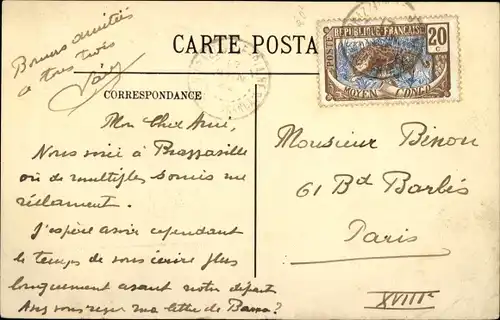 Bonnes amitiés
à tous trois
CARTE POSTA
POSTE
RÉPUBLIQUE FRANÇAISE
20 c
MOYEN CONGO
CORRESPONDANCE
Mon cher Ami,
Nous voici à Brazzaville
où de multiples soucis me
réclament.
J'espère avoir cependant
le temps de vous écrire plus
longuement avant notre départ
Avez vous reçu ma lettre de ?
Monsieur Binon
61 Bd Barbès
Paris
XVIIIe